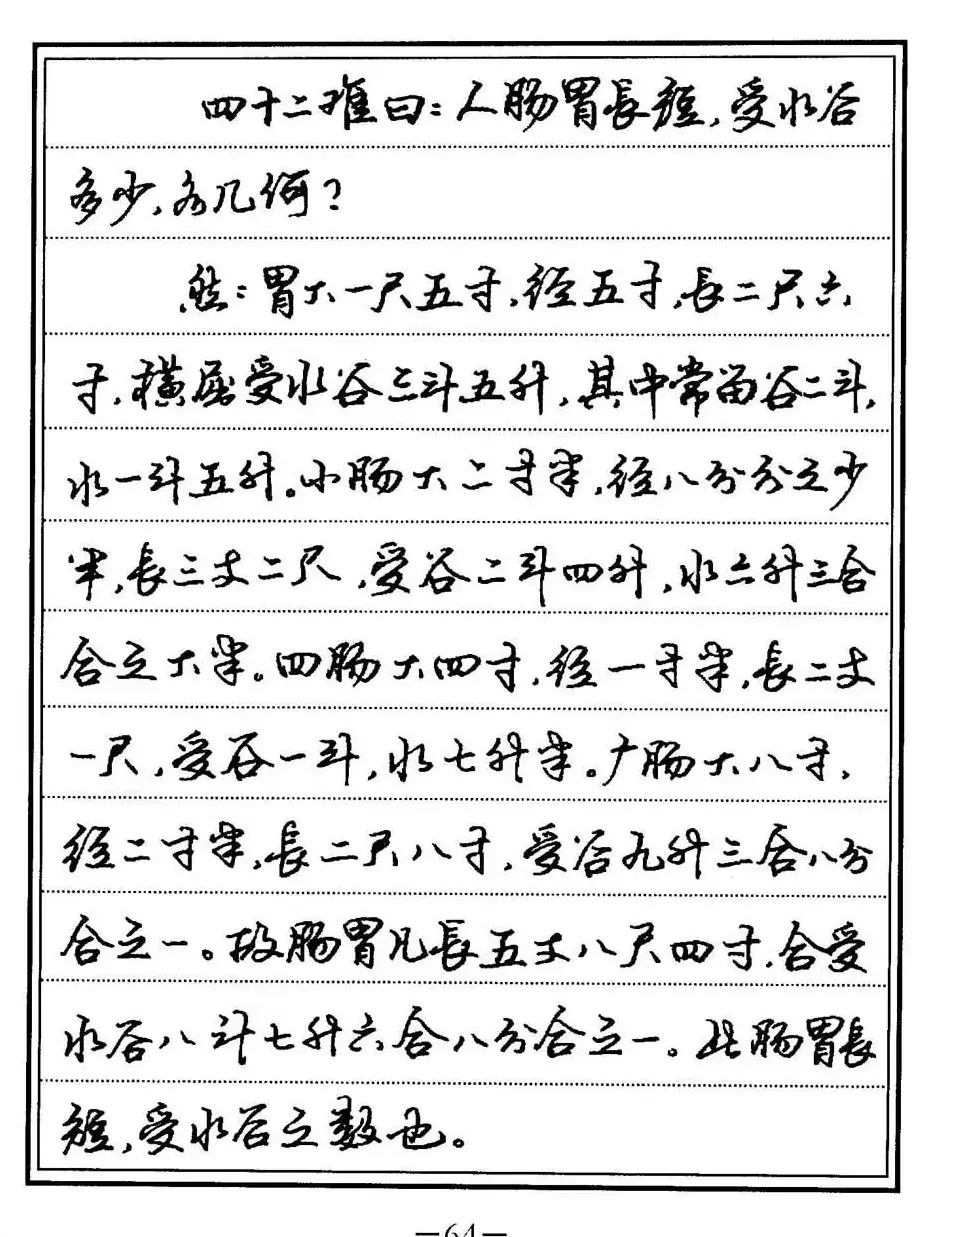 四十二难曰：人肠胃長短，受水谷
多少，各几何？
然：胃大一尺五寸，径五寸，長二尺六
寸，横屈受水谷三斗五升，其中常留谷二斗，
水一斗五升。小肠大二寸半，径八分分之少
半，長三丈二尺，受谷二斗四升，水六升三合
合之大半。四肠大四寸，径一寸半，長二丈
一尺，受谷一斗，水七升半。广肠大八寸，
径二寸半，長二尺八寸，受谷九升三合八分
合之一。故肠胃凡長五丈八尺四寸，合受
水谷八斗七升六合八分合之一。此肠胃長
短，受水谷之数也。
—64—